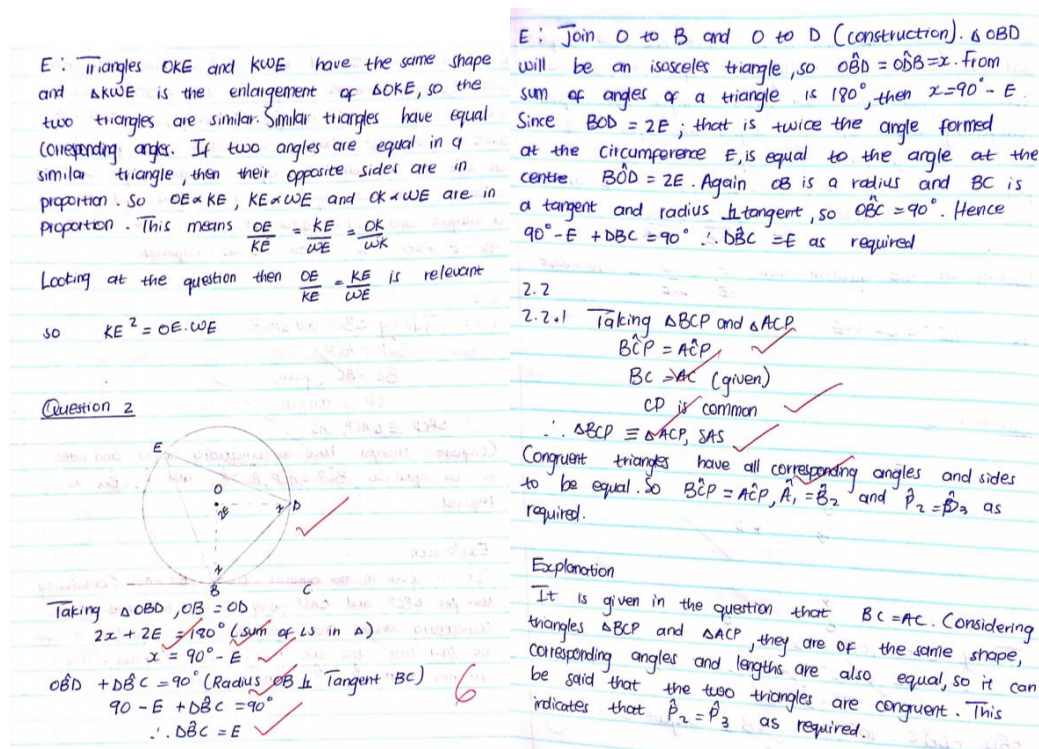 E : Triangles OKE and KWE have the same shape
and ΔKWE is the enlargement of ΔOKE, so the
two triangles are similar. Similar triangles have equal
corresponding angles. If two angles are equal in a
similar triangle, then their opposite sides are in
proportion. So OE∝KE, KE∝WE and OK∝WE are in
proportion. This means OE/KE = KE/WE = OK/WK
Looking at the question then OE/KE = KE/WE is relevant
so KE² = OE.WE
Question 2
E
O
2E
x D
x
B C
Taking ΔOBD, OB = OD
2x + 2E = 180° (sum of ∠s in Δ)
x = 90° - E
OB̂D + DB̂C = 90° (Radius OB ⊥ Tangent BC)
90 - E + DB̂C = 90°
∴ DB̂C = E
6
E : Join O to B and O to D (construction). Δ OBD
will be an isosceles triangle, so OB̂D = OD̂B = x. From
sum of angles of a triangle is 180°, then x = 90° - E.
Since BOD = 2E ; that is twice the angle formed
at the circumference E, is equal to the angle at the
centre BÔD = 2E. Again OB is a radius and BC is
a tangent and radius ⊥ tangent, so OB̂C = 90°. Hence
90° - E + DBC = 90° ∴ DB̂C = E as required
2.2
2.2.1 Taking ΔBCP and ΔACP
BĈP = AĈP
BC = AC (given)
CP is common
∴ ΔBCP ≡ ΔACP, SAS
Congruent triangles have all corresponding angles and sides
to be equal. So BĈP = AĈP, Â₁ = B̂₂ and P̂₂ = P̂₃ as
required.
Explanation
It is given in the question that BC = AC. Considering
triangles ΔBCP and ΔACP, they are of the same shape,
corresponding angles and lengths are also equal, so it can
be said that the two triangles are congruent. This
indicates that P̂₂ = P̂₃ as required.